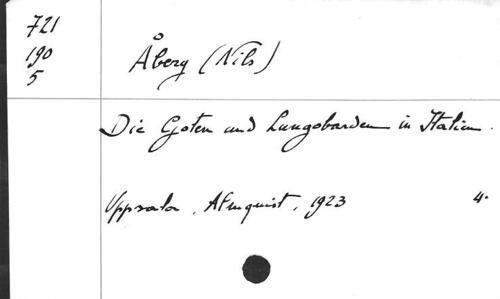 721
190
5
Åberg (Nils)
Die Goten und Langobarden in Italien.
Uppsala, Almquist, 1923 4°